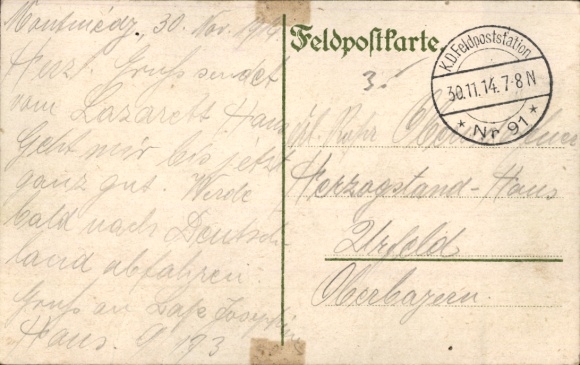 Montmédy, 30. Nov. 1914.
Herzl. Gruß sendet
vom Lazarett Hans
Geht mir bis jetzt
ganz gut. Werde
bald nach Deutsch-
land abfahren.
Gruß an
Haus.
Feldpostkarte.
3.
K.D. Feldpoststation
30.11.14.7-8 N
* Nr. 91 *
Herzogstand-Haus
Urfeld
Oberbayern.